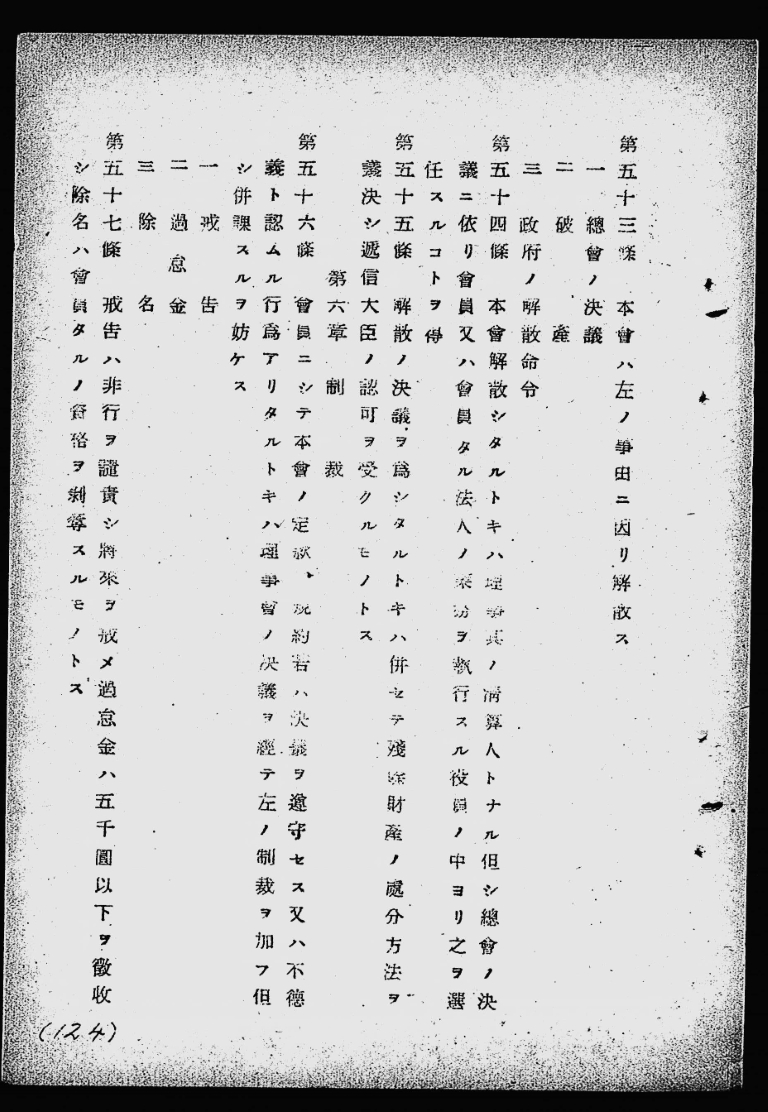 第五十三條　本會ハ左ノ事由ニ因リ解散ス
一　總會ノ決議
二　破　產
三　政府ノ解散命令
第五十四條　本會解散シタルトキハ理事其ノ淸算人トナル但シ總會ノ決
議ニ依リ會員又ハ會員タル法人ノ業務ヲ執行スル役員ノ中ヨリ之ヲ選
任スルコトヲ得
第五十五條　解散ノ決議ヲ爲シタルトキハ併セテ殘餘財產ノ處分方法ヲ
議決シ遞信大臣ノ認可ヲ受クルモノトス
第六章　制　裁
第五十六條　會員ニシテ本會ノ定款、規約若ハ決議ヲ遵守セス又ハ不德
義ト認ムル行爲アリタルトキハ理事會ノ決議ヲ經テ左ノ制裁ヲ加フ但
シ併課スルヲ妨ケス
一　戒　告
二　過怠金
三　除　名
第五十七條　戒告ハ非行ヲ譴責シ將來ヲ戒メ過怠金ハ五千圓以下ヲ徵收
シ除名ハ會員タルノ資格ヲ剝奪スルモノトス
(124)